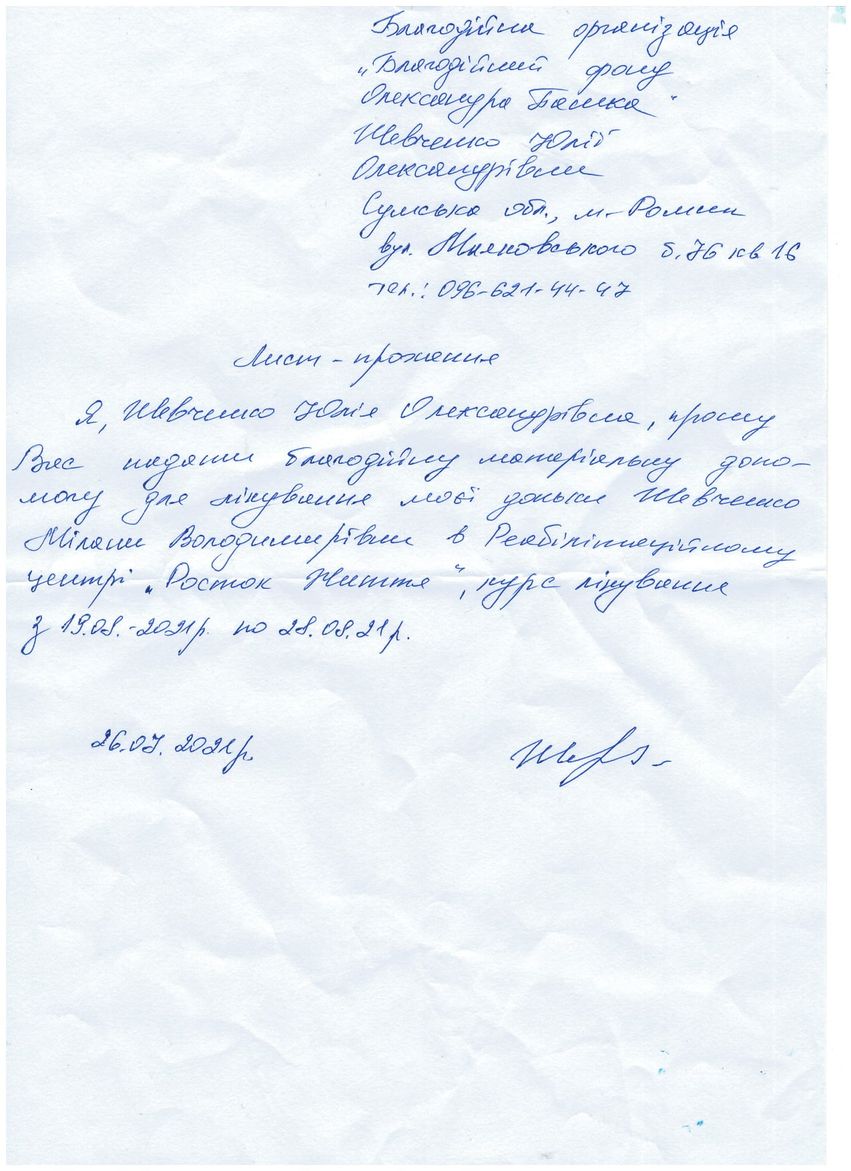 Благодійна організація
„Благодійний фонд
Олександра Башка"
Шевченко Юлії
Олександрівни
Сумська обл., м-Ромни
вул. Маяковського б.76 кв 16
тел.: 096-621-44-47
Лист-прохання
Я, Шевченко Юлія Олександрівна, прошу
Вас надати благодійну матеріальну допо-
могу для лікування моєї доньки Шевченко
Мілани Володимирівни в Реабілітаційному
центрі „Росток Життя", курс лікування
з 19.08.-2021р. по 28.08.21р.
26.07.2021р.